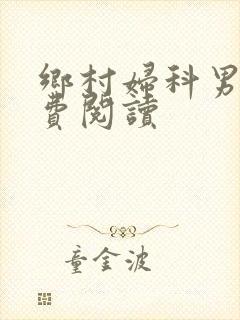 鄉村婦科男
費閱讀
童金波